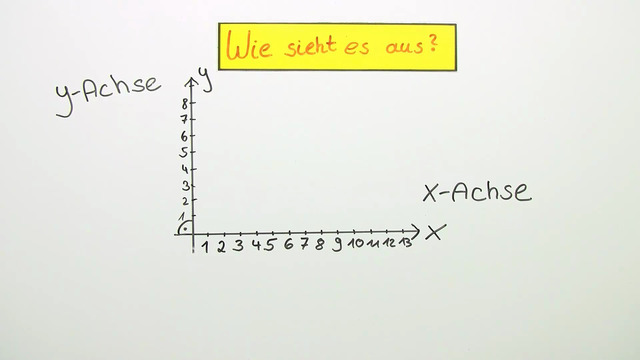 Wie sieht es aus?
y-Achse
y
8
7
6
5
4
3
2
1
x-Achse
1 2 3 4 5 6 7 8 9 10 11 12 13 x